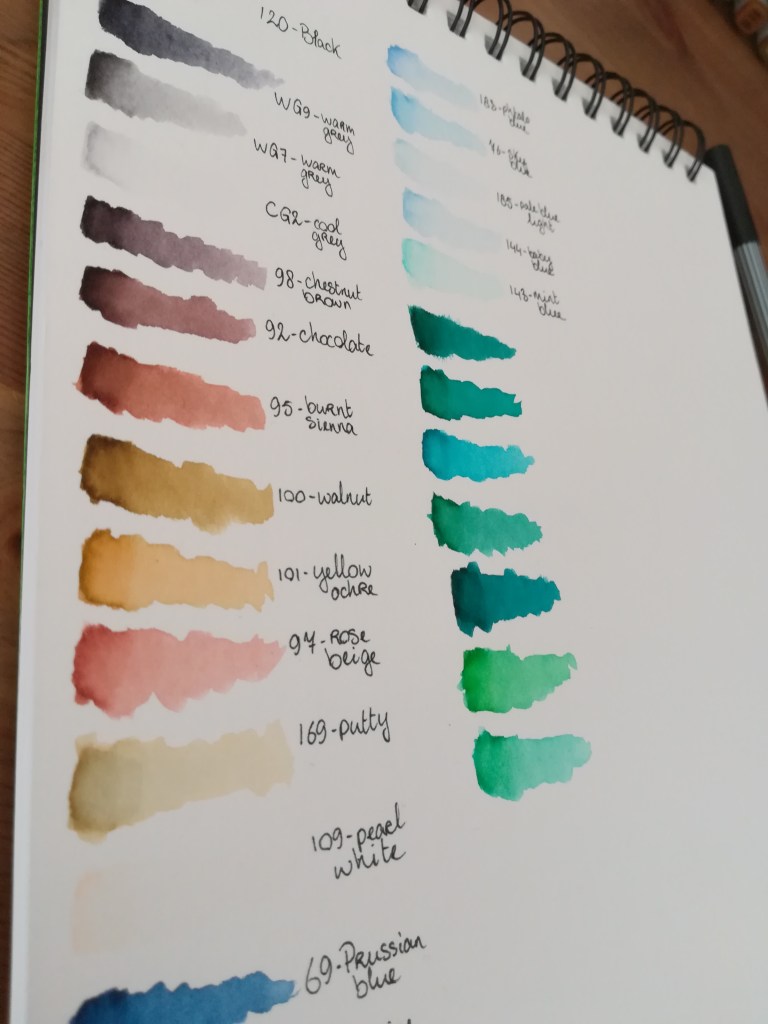 120-Black
WG9-warm
grey
WG7-warm
grey
CG2-cool
grey
98-chestnut
brown
92-chocolate
95-burnt
sienna
100-walnut
101-yellow
ochre
97-rose
beige
169-putty
109-pearl
white
69-Prussian
blue
blue
76-sky
blue
185-pale blue
light
144-baby
blue
143-mint
blue